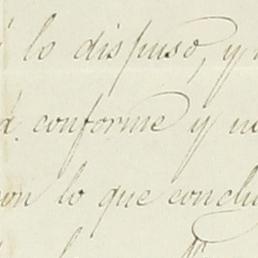 lo dispuso, y
conforme y
lo que conclu